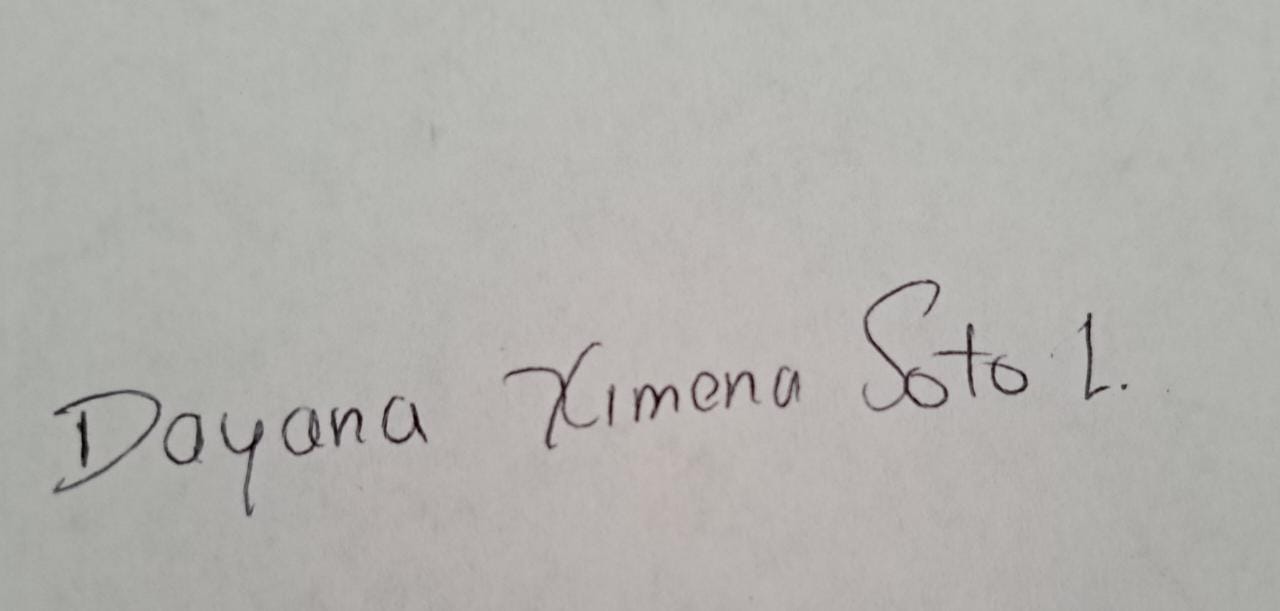 Dayana Ximena Soto L.